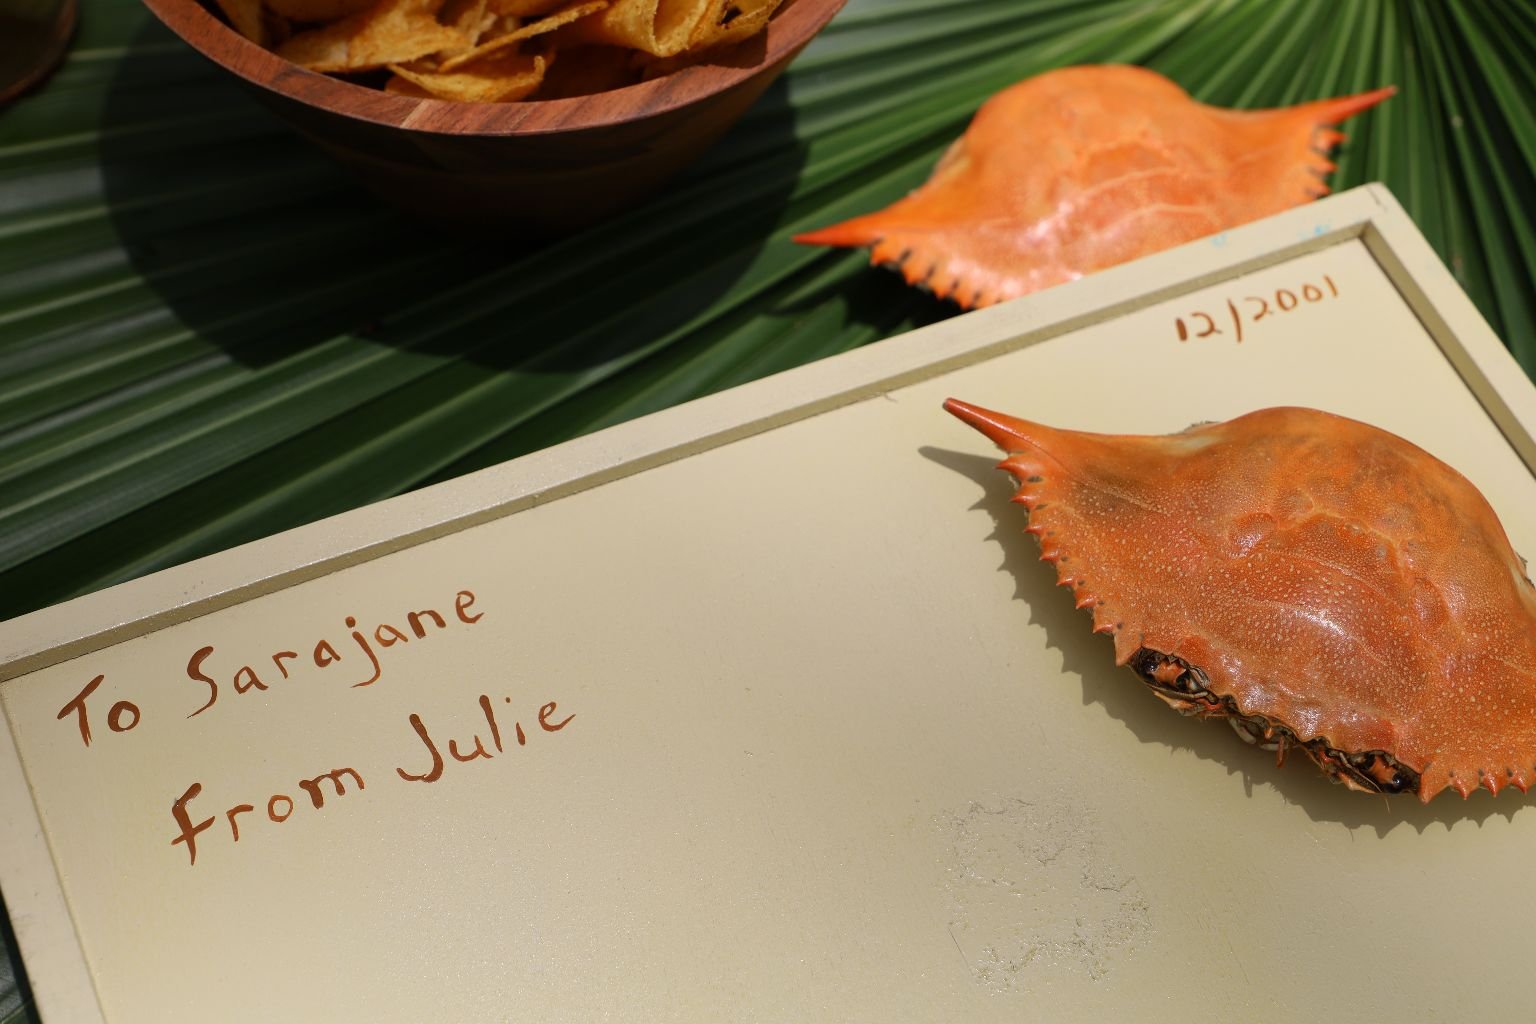 12/2001
To Sarajane
from Julie